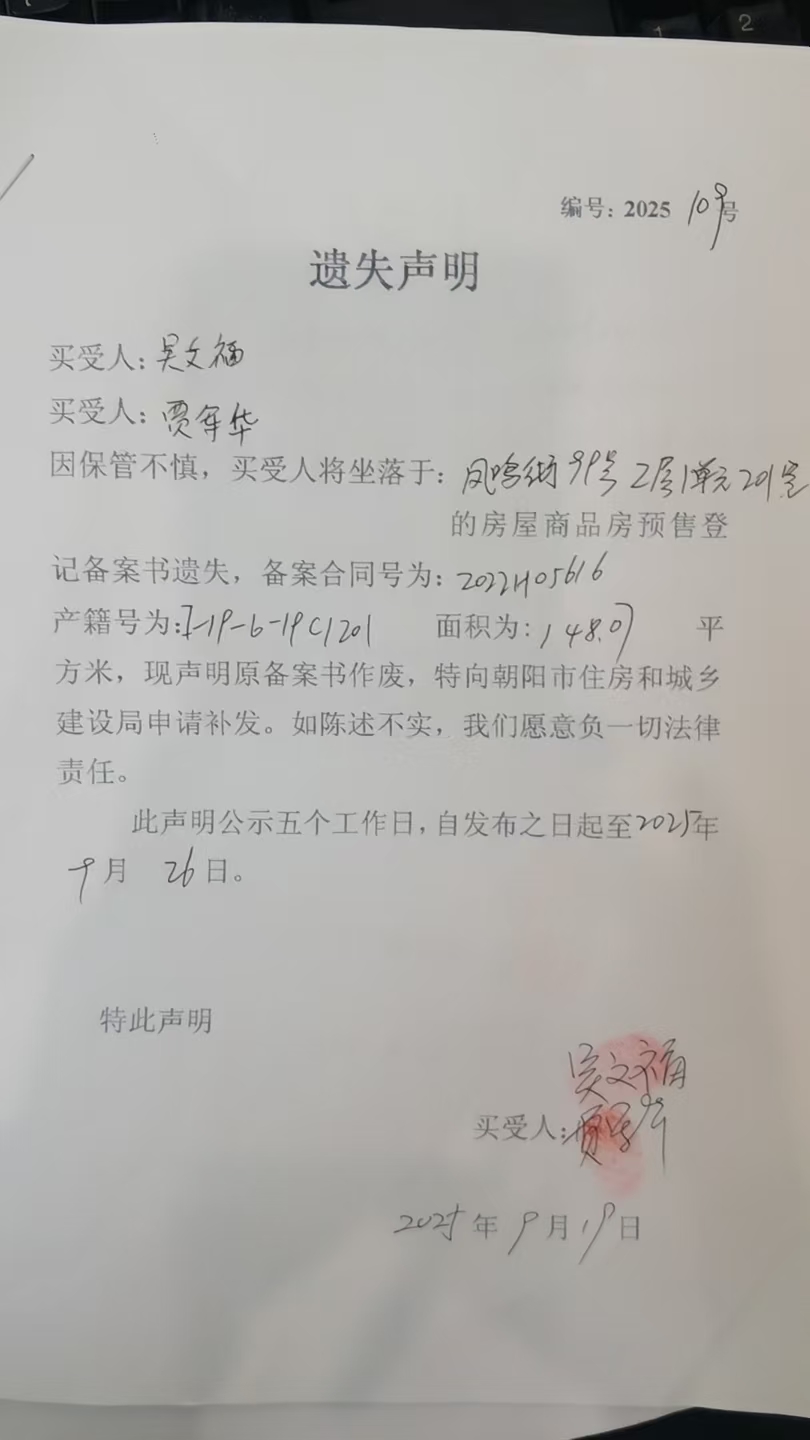 编号：2025 109号
遗失声明
买受人：吴文福
买受人：贾军华
因保管不慎，买受人将坐落于：凤鸣街99号2层1单元201室
的房屋商品房预售登
记备案书遗失，备案合同号为：2022H05616
产籍号为：I-19-6-19C1201 面积为：148.07 平
方米，现声明原备案书作废，特向朝阳市住房和城乡
建设局申请补发。如陈述不实，我们愿意负一切法律
责任。
此声明公示五个工作日，自发布之日起至2025年
9月 26日。
特此声明
吴文福
买受人：贾军华
2025年9月19日